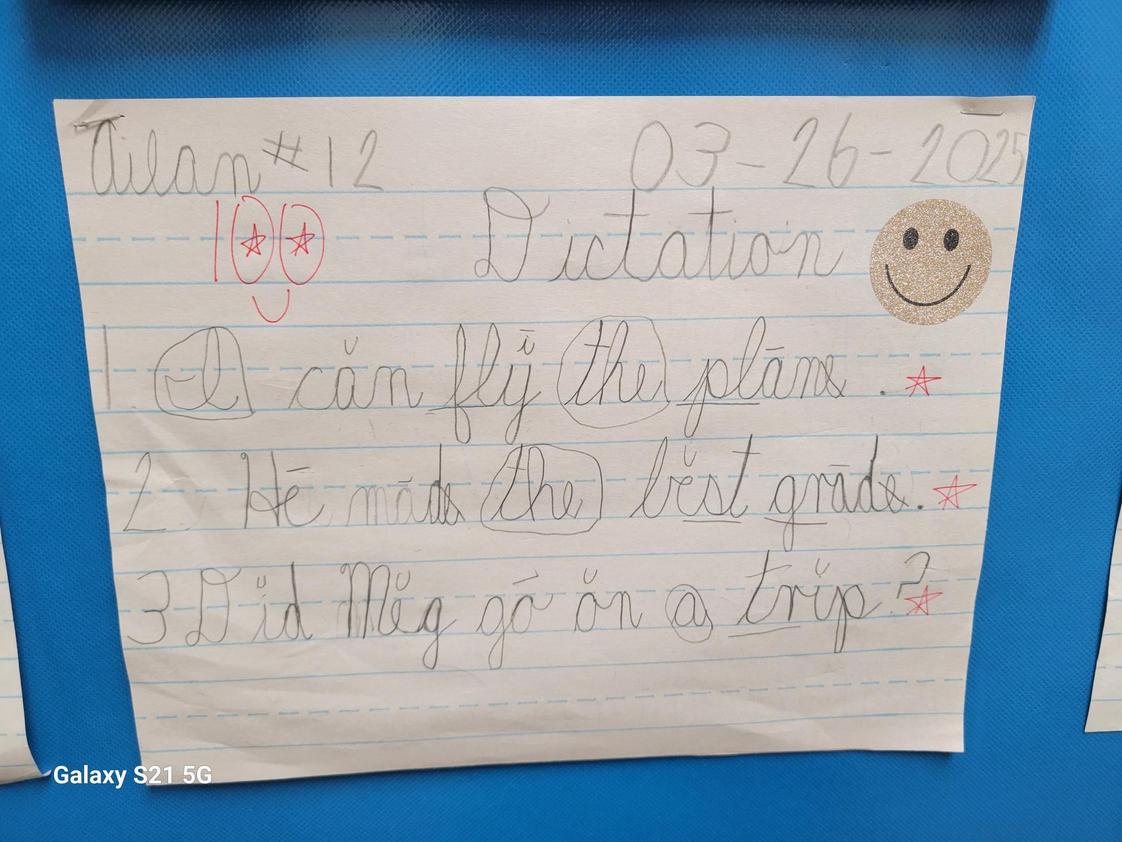 Ailan #12 03-26-2025
100 Dictation
1. I căn flȳ the plāne.
2. Hē māde the bĕst grāde.
3 Dĭd Mĕg gō ŏn a trĭp?
Galaxy S21 5G